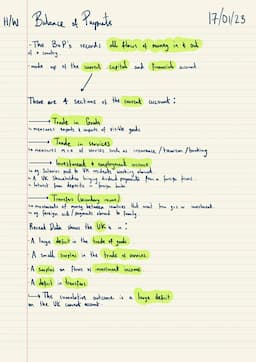 H/W Balance of Payments 17/01/23
- The BoP's records all flows of money in & out
of a country.
- made up of the current, capital and financial account.
There are 4 sections of the current account:
→ Trade in Goods
↳ measures exports & imports of visible goods
→ Trade in services
↳ measures of services such as insurance / tourism / banking
→ Investment & employment income
↳ eg Salaries paid to UK residents working abroad
↳ A UK shareholder buying dividend payments from a foreign firm
↳ Interest from deposits in foreign banks
→ Transfers (secondary income)
↳ movements of money between countries that arent from g+s or investment.
↳ eg foreign aid / payments abroad to family
Recent Data shows the UK is in:
- A large deficit in the trade of goods
- A small surplus in the trade of services
- A surplus on flows of investment income
- A deficit in transfers
↳ The cumulative outcome is a large deficit
on the UK current account.